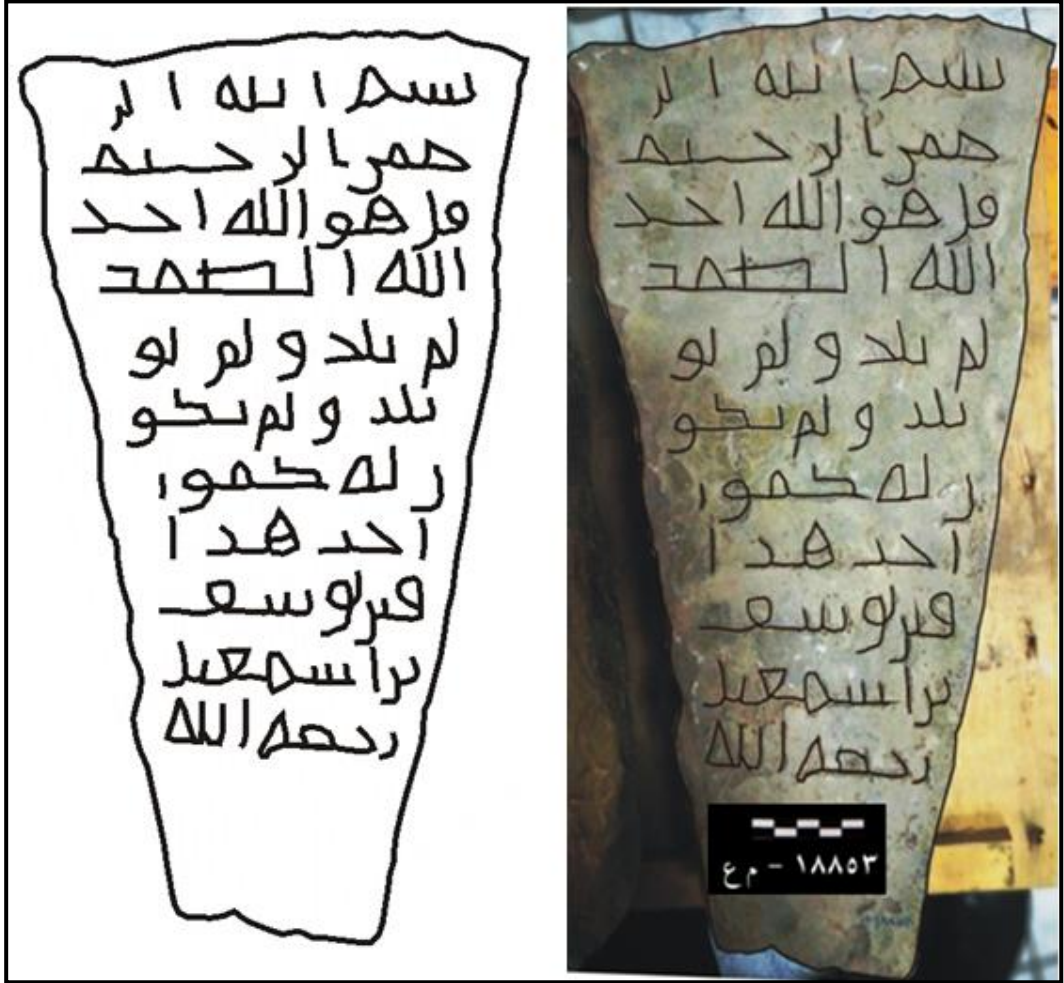 بسم الله الر
حمن الرحيم
قل هو الله احد
الله الصمد
لم يلد و لم يو
يلد و لم يكو
ن له كفوا
احد هذا
قبر يوسف
بن اسمعيل
رحمه الله
بسم الله الر
حمن الرحيم
قل هو الله احد
الله الصمد
لم يلد و لم يو
يلد و لم يكو
ن له كفوا
احد هذا
قبر يوسف
بن اسمعيل
رحمه الله
١٨٨٥٣ - م ع